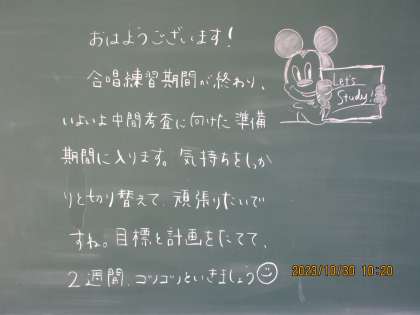 おはようございます!
合唱練習期間が終わり、
いよいよ中間考査に向けた準備
期間に入ります。気持ちをしっか
りと切り替えて、頑張りたいで
すね。目標と計画をたてて、
2週間、コツコツといきましょう
Let's
Study!
2023/10/30 10:20